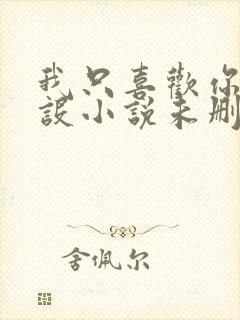 我只喜歡你
設小說未刪
舍佩尔